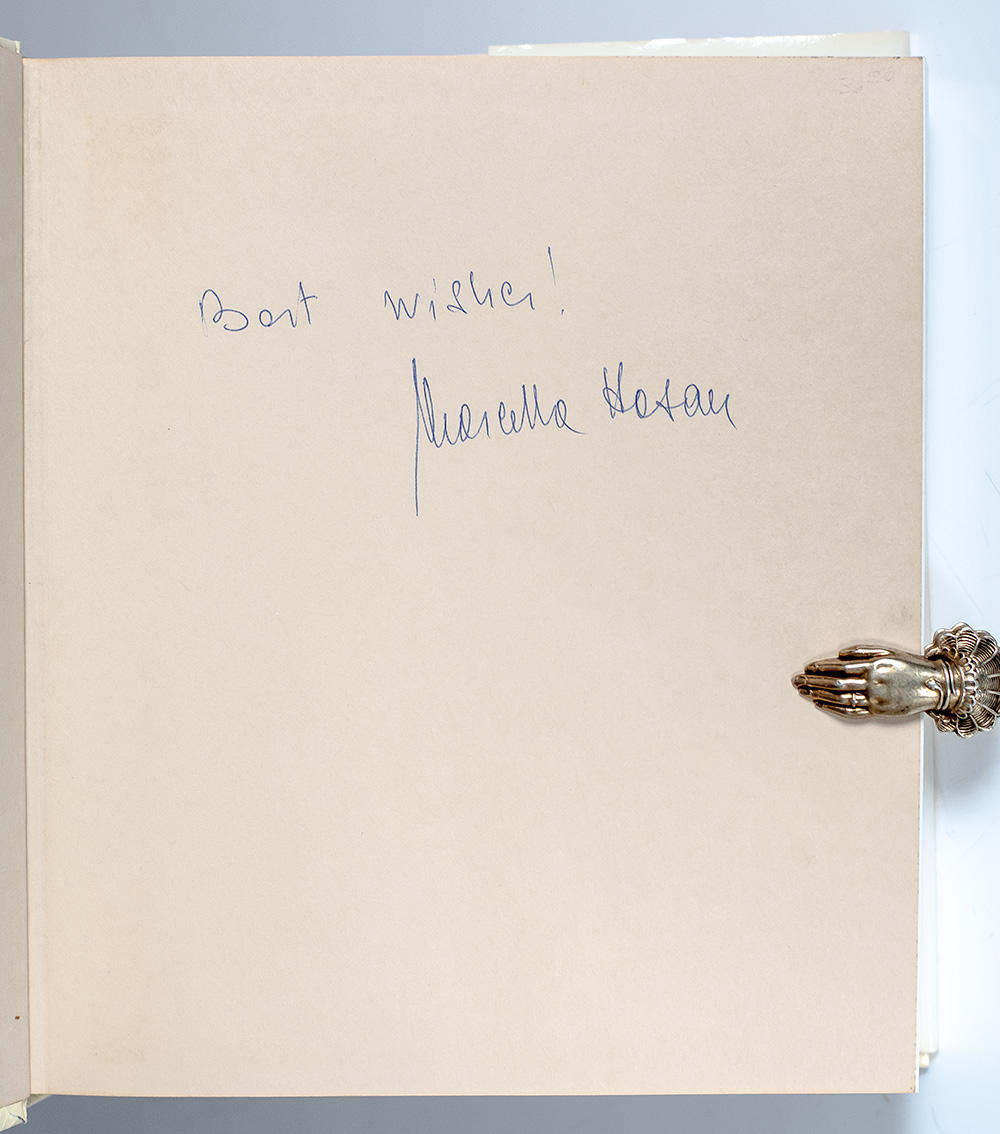 Best wishes!
Marcella Hazan